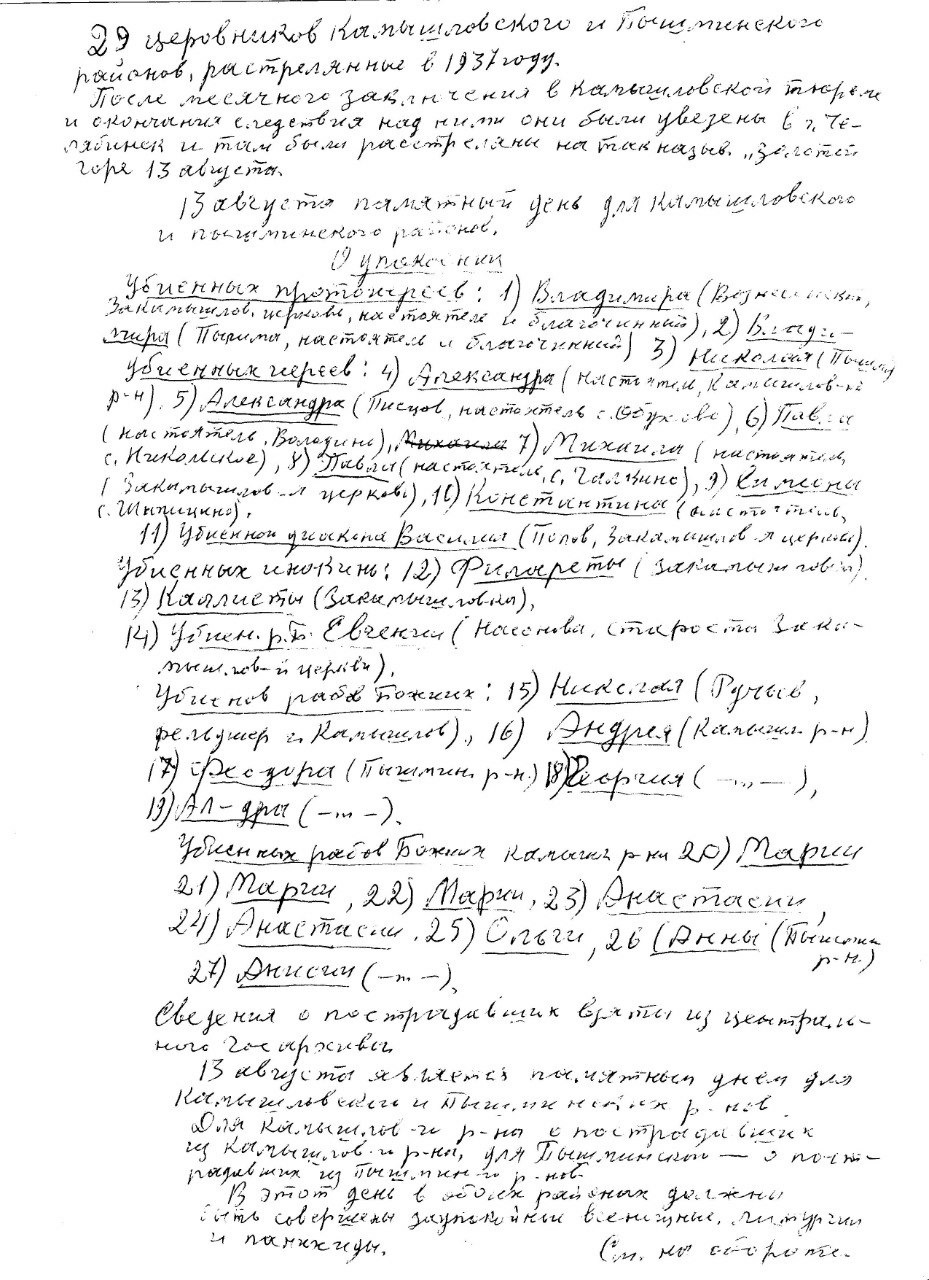 29 церовников Камышловского и Пышминского
районов, растрелянные в 1937 году.
После месячного заключения в Камышловской тюрьме
и окончания следствия над ними они были увезены в г. Че-
лябинск и там были расстреляны на так назыв. „Золотой
горе 13 августа.
13 августа памятный день для Камышловского
и пышминского районов.
О упокоении
Убиенных протоиереев: 1) Владимира (Вознесенский,
Закамышлов. церкови, настоятель и благочинный), 2) Влади-
мира (Пышма, настоятель и благочинный) 3) Николая (Пышма)
Убиенных иереев: 4) Александра (настоятель, Камышлов-го
р-н). 5) Александра (Писцов, настоятель с. Обухово), 6) Павла
(настоятель, Володино), Михаила 7) Михаила (настоятель,
с. Никольское), 8) Павла (настоятель, с. Галкино), 9) Симеона
(Закамышлов-я церковь), 10) Константина (настоятель,
с. Шипицино).
11) Убиенной диакона Василия (Попов, Закамышлов-я церковь).
Убиенных инокинь: 12) Филареты (Закамышловка)
13) Каллисты (Закамышловка),
14) Убиен. р. Б. Евгении (Насонова, староста Зака-
мышлов-й церкви).
Убиенов рабов Божиих: 15) Николая (Ручьев,
фельдшер г. Камышлов)., 16) Андрея (Камышл. р-н)
17) Феодора (Пышмин. р-н.) 18) Георгия (–"–),
19) Ал-дры (–"–).
Убиенных рабов Божиих Камышл р-на 20) Марии
21) Марии, 22) Марии, 23) Анастасии,
24) Анастасии, 25) Ольги, 26 (Анны (Пышмин
р-н.)
27) Анисии (–"–),
Сведения о пострадавших взяты из централь-
ного Госархива
13 августа является памятным днем для
Камышловского и Пышминских р-нов
Для Камышлов-го р-на о пострадавших
из Камышлов-го р-на, для Пышминской — о пост-
радавших из Пышмин-го р-нов
В этот день в обоих районах должны
быть совершены заупокойные всенощные, литургии
и панихиды.
См. на обороте.